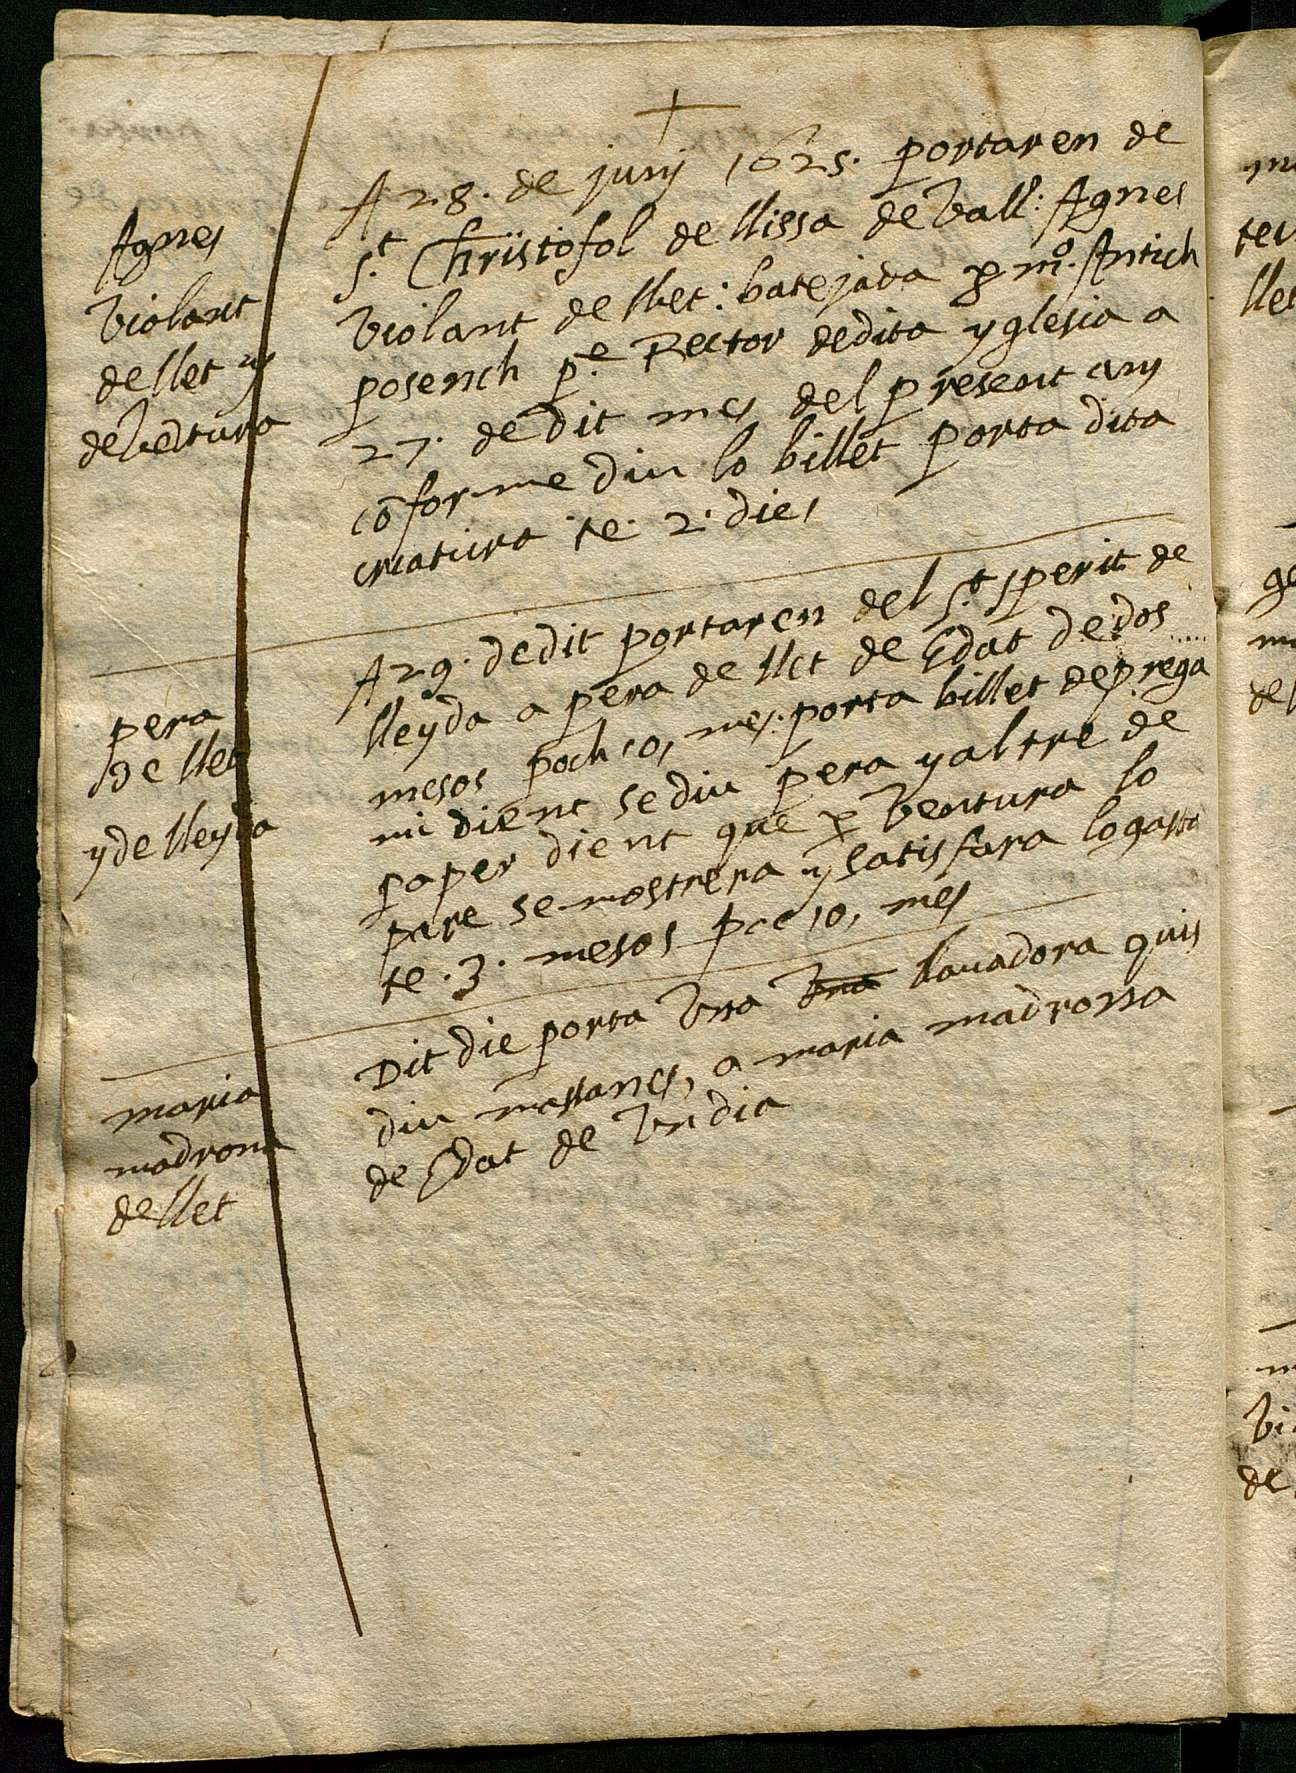 Agnes
Violant
de llet y
de Ventura
A 28. de juny 1625. portaren de
s.t Christofol de llissa de Vall: Agnes
Violant de llet: batejada p m.o Antich
posench p.e Rector de dita yglesia a
27. de dit mes del present any
cōforme diu lo billet porta dita
criatura te. 2. dies
pera
de llet
y de lleyda
A 29. de dit portaren del s.t sperit de
lleyda a pera de llet de Edat de dos
mesos poch, o, mes. porta billet de prega
mi dient se diu pera y altre de
paper dient que p Ventura lo
pare se mostrera y satisfara lo gasto
te. 3. mesos poc, o, mes
maria
madrona
de llet
Dit die porta Vna Vna llauadora quis
diu massanes, a maria madrona
de Edat de Vn dia
ter
llet
de